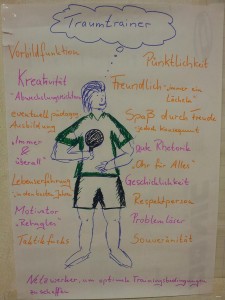 Traumtrainer
Vorbildfunktion
Pünktlichkeit
Kreativität
"Abwechslungsreichtum"
Freundlich - "immer ein Lächeln"
eventuell pädagog. Ausbildung
Spaß durch Freude
jedoch konsequent
"immer & überall"
gute Rhetorik
"Ohr für Alles"
Lebenserfahrung
Geschicklichkeit
Motivator
Respektperson
Problemlöser
Taktikfuchs
Souveränität
Netzwerker, um optimale Trainingsbedingungen
zu schaffen